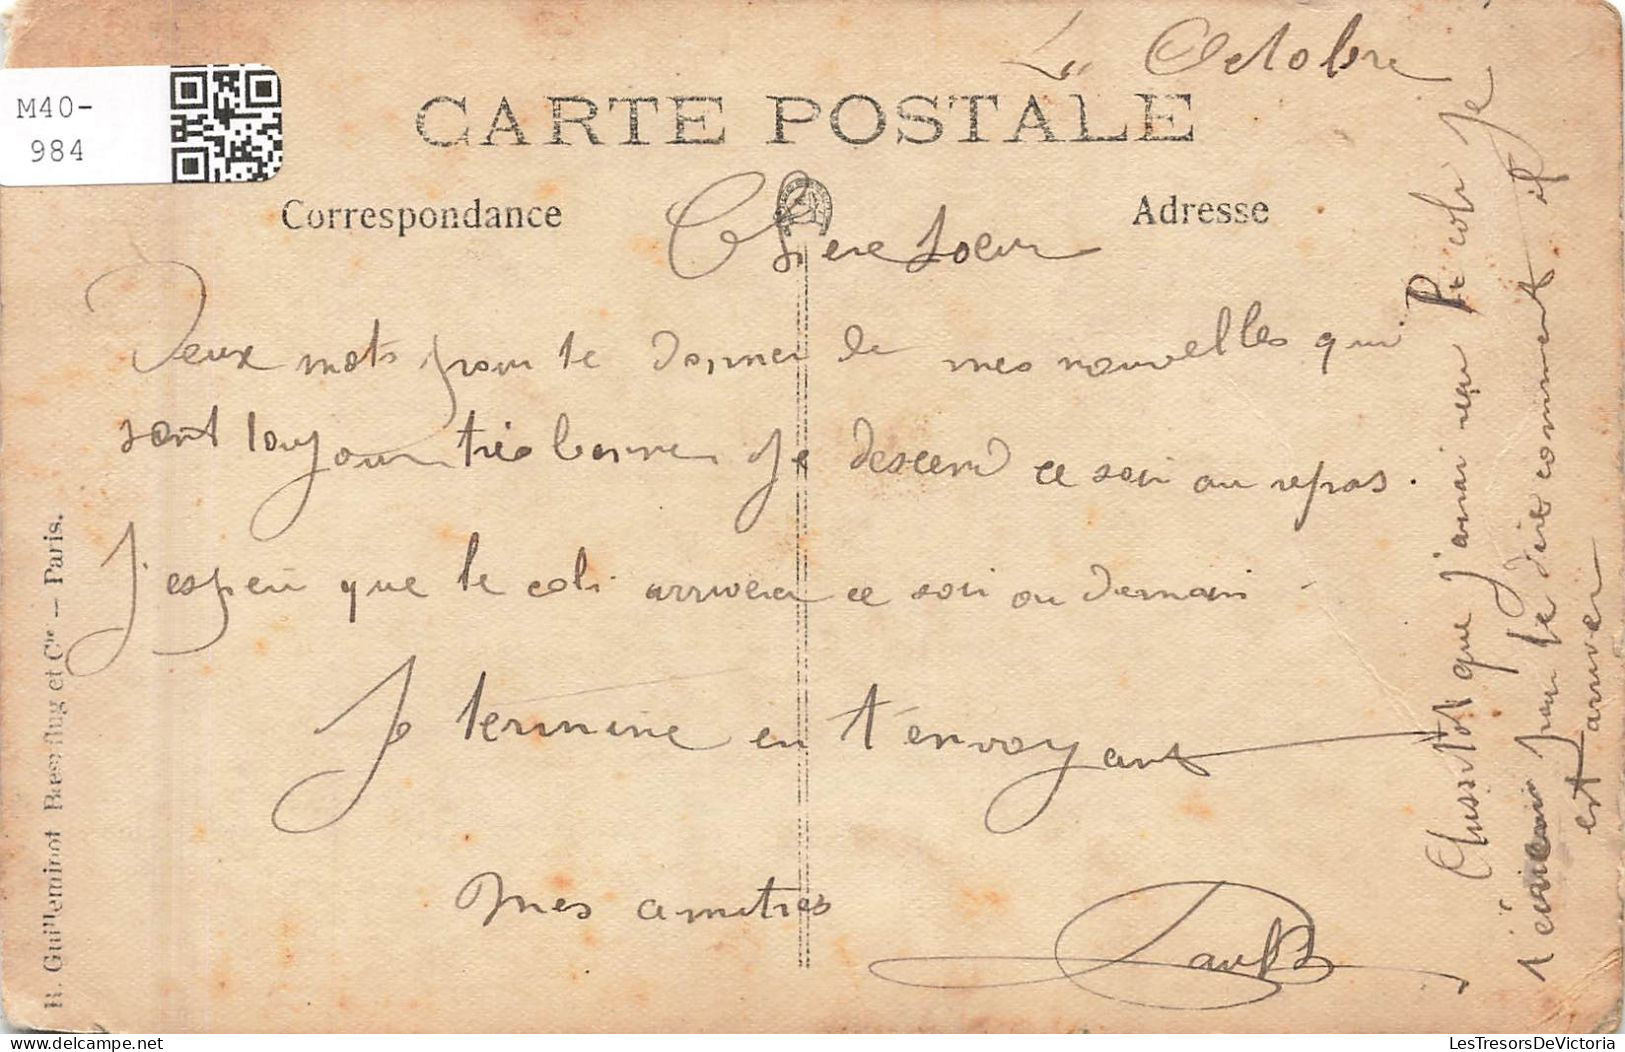 M40-
984
Le Octobre
CARTE POSTALE
Correspondance
Adresse
Chere Soeur
Deux mots pour te donner de mes nouvelles qui
sont toujour très bonne Je descend ce soir au repos.
J'esper que le coli arrivera ce soir ou demain
Je termine en t'envoyant
mes amitiés
Paul B
Aussitot que j'aurai reçu le coli Je
t'écrirai pour te dire comment il
est arriver
R. Guilleminot Bœspflug et Cie – Paris.
LesTresorsDeVictoria
LesTresorsDeVictoria.com